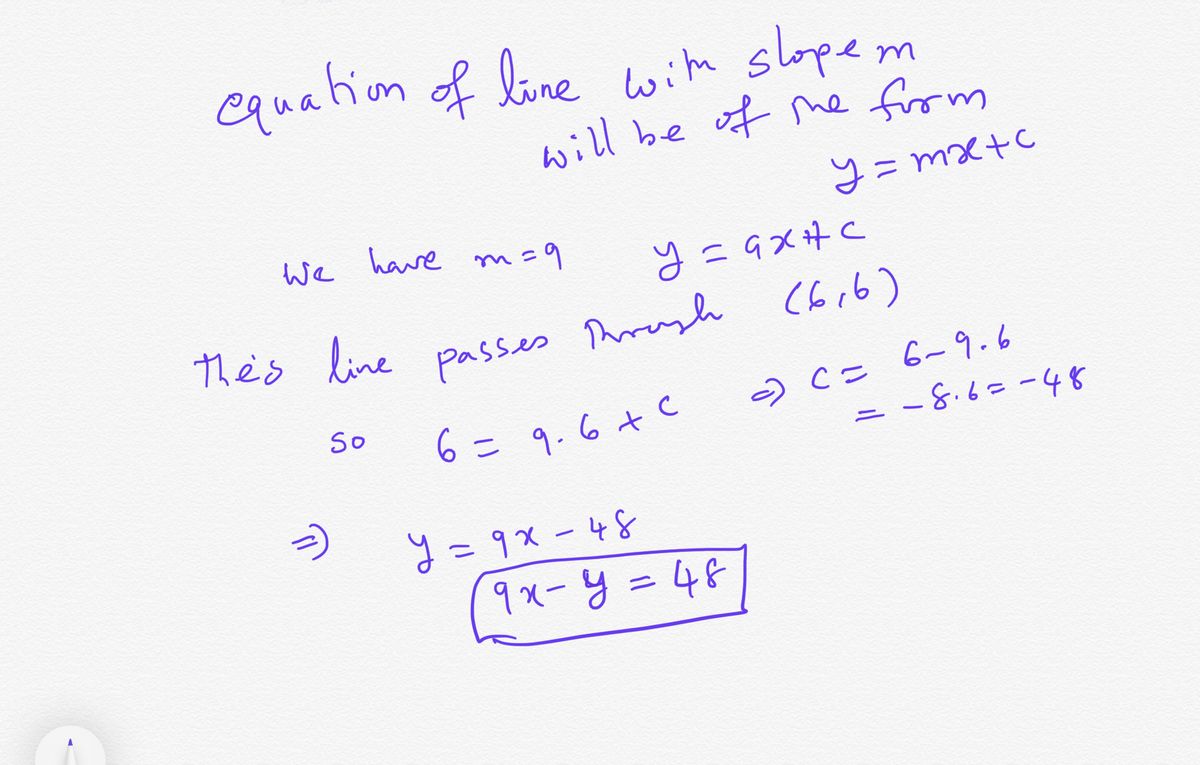 equation of line with slope m
will be of the form
y = mx + c
We have m = 9 y = 9x + c
this line passes through (6,6)
so 6 = 9.6 + c ⇒ c = 6 - 9.6
= -8.6 = -48
⇒ y = 9x - 48
9x - y = 48